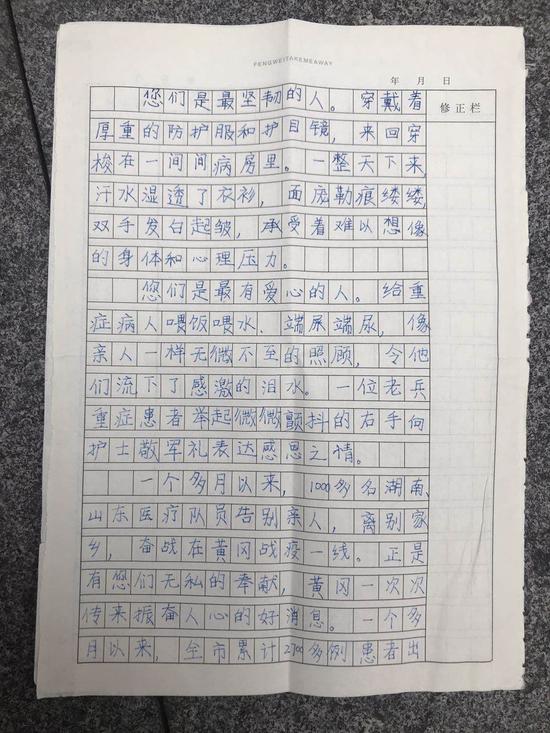 FENGWEITAKEMEAWAY
年 月 日
修正栏
您们是最坚韧的人。穿戴着
厚重的防护服和护目镜，来回穿
梭在一间间病房里。一整天下来，
汗水湿透了衣衫，面庞勒痕缕缕，
双手发白起皱，承受着难以想像
的身体和心理压力。
您们是最有爱心的人。给重
症病人喂饭喂水、端屎端尿，像
亲人一样无微不至的照顾，令他
们流下了感激的泪水。一位老兵
重症患者举起微微颤抖的右手向
护士敬军礼表达感恩之情。
一个多月以来，1000多名湖南、
山东医疗队员告别亲人，离别家
乡，奋战在黄冈战疫一线。正是
有您们无私的奉献，黄冈一次次
传来振奋人心的好消息。一个多
月以来，全市累计2700多例患者出